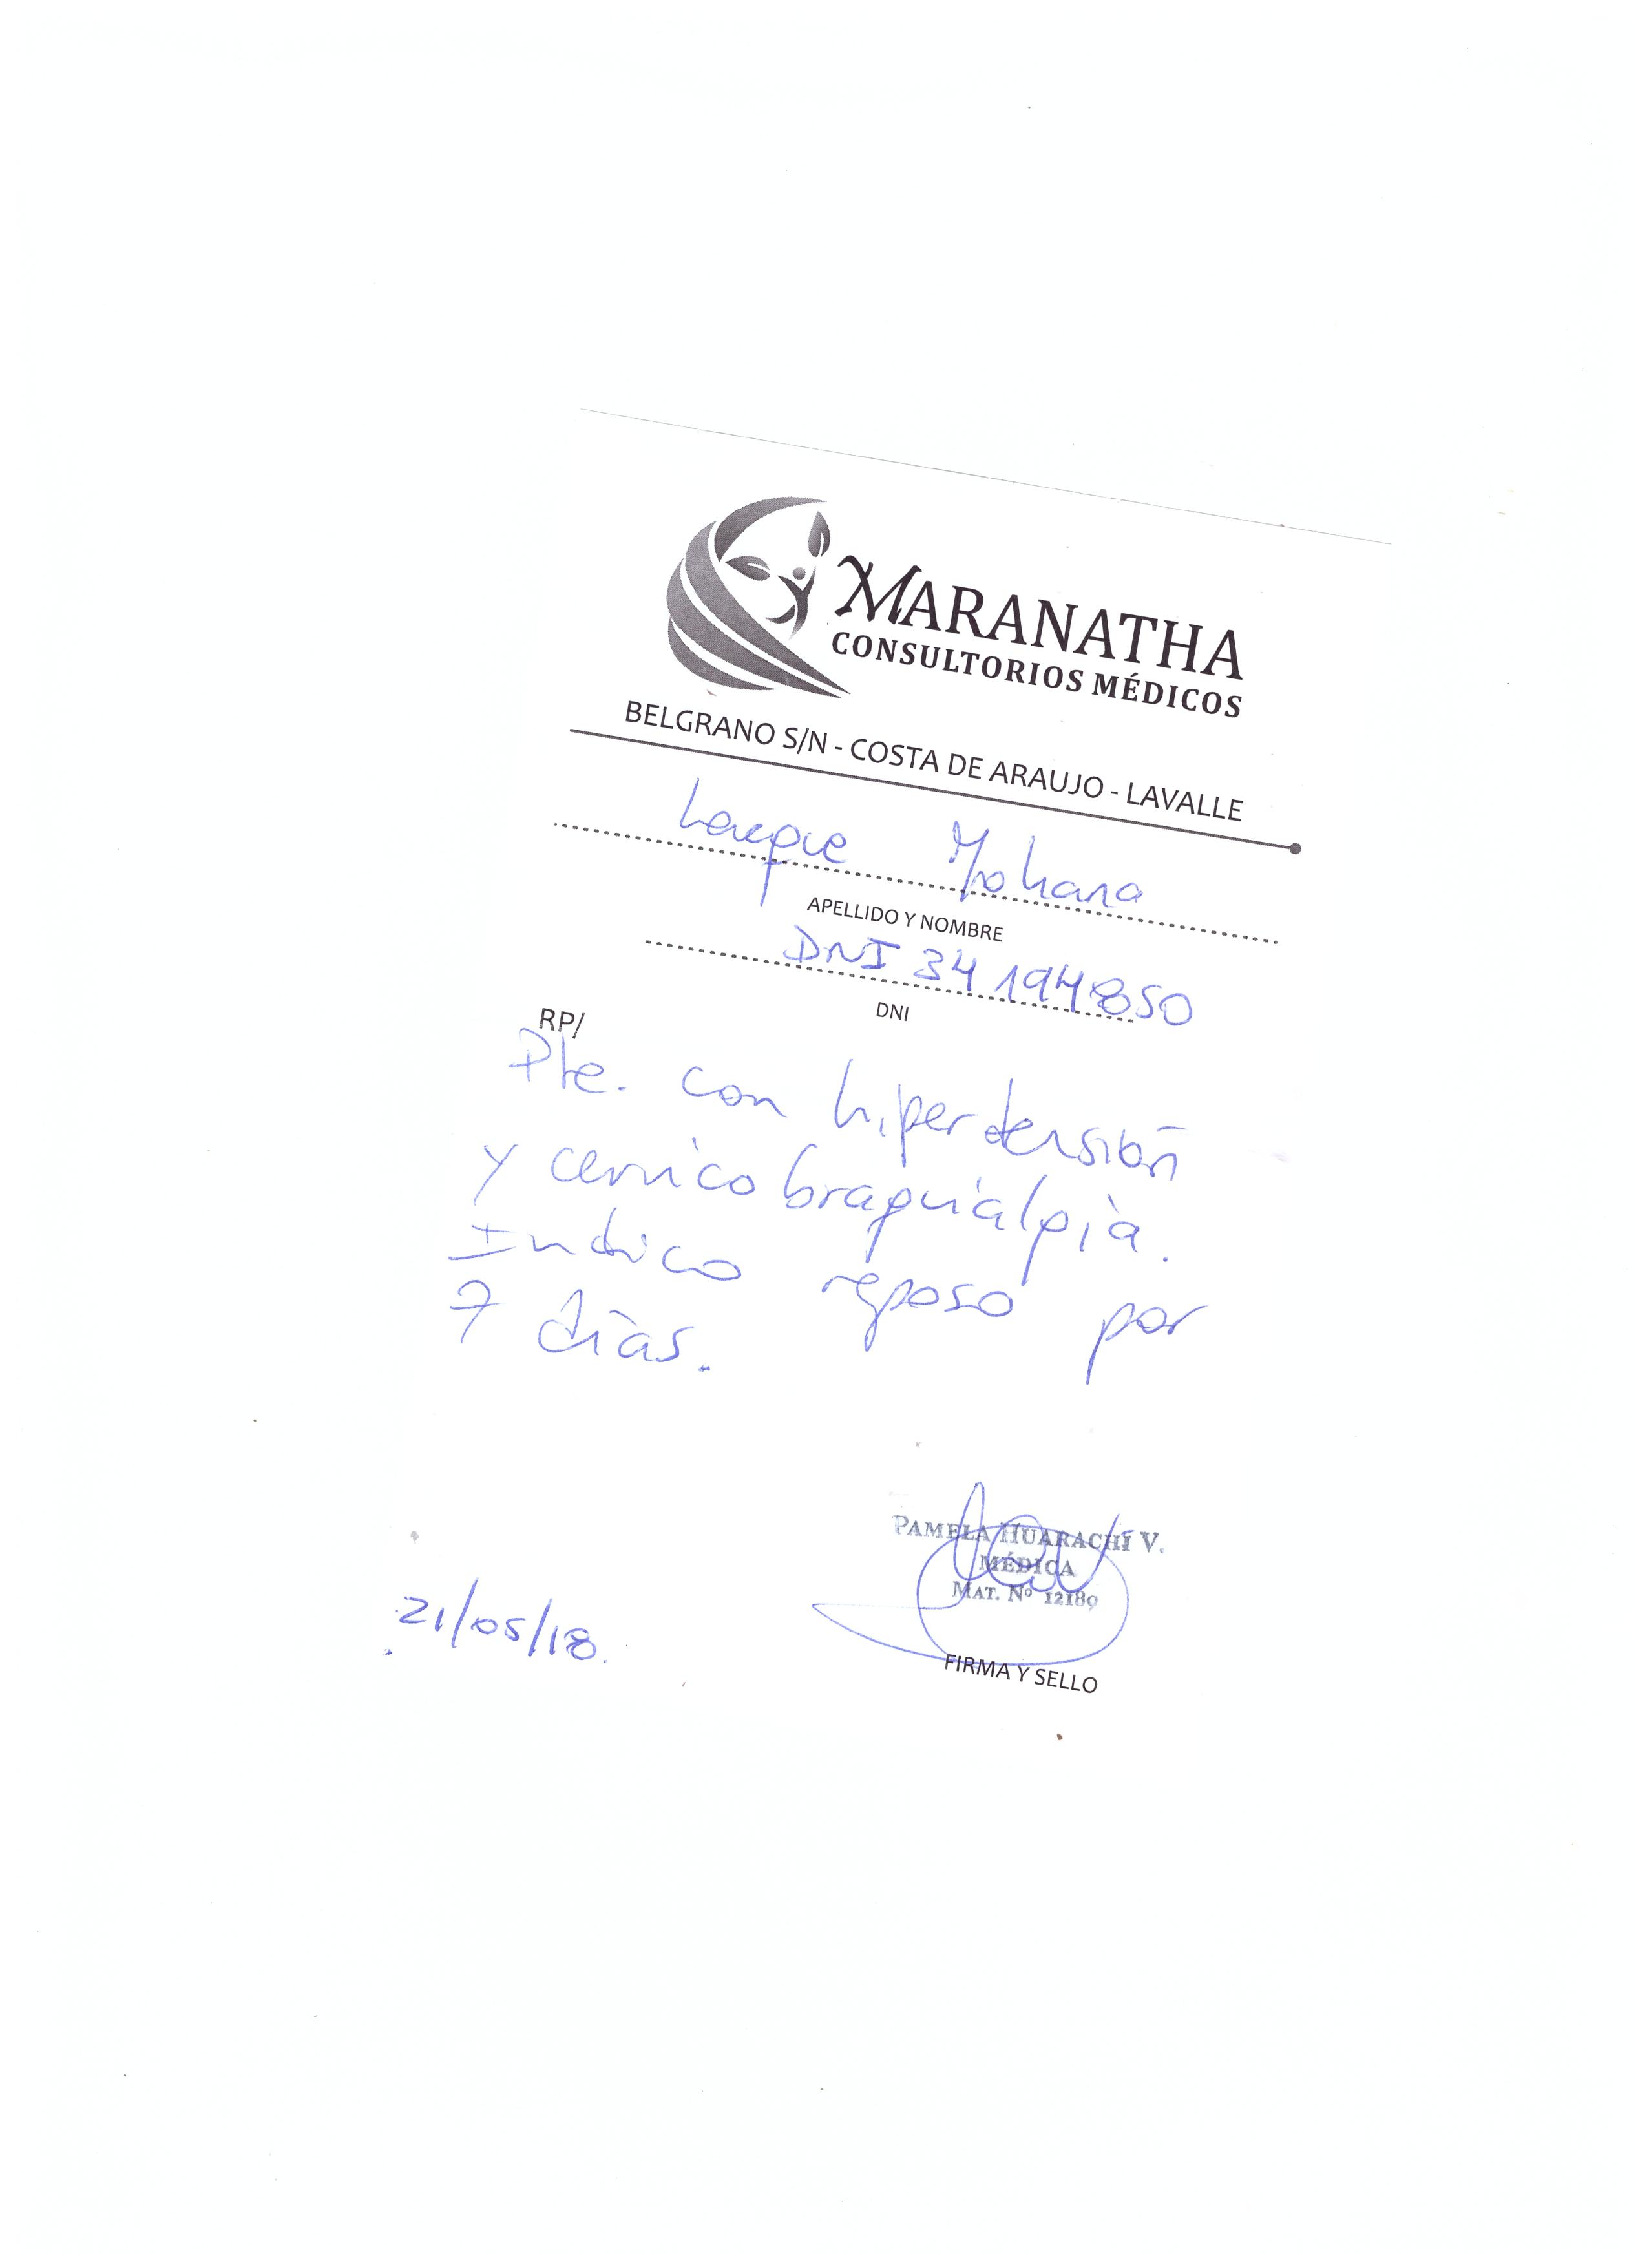 MARANATHA
CONSULTORIOS MÉDICOS
BELGRANO S/N - COSTA DE ARAUJO - LAVALLE
Yohana
APELLIDO Y NOMBRE
DNI 34 194850
DNI
RP/
Pte. con hipertensión
y cervicobraquialgia.
Indico reposo por
7 días.
PAMELA HUARACHI V.
MÉDICA
MAT. Nº 12189
21/05/18.
FIRMA Y SELLO